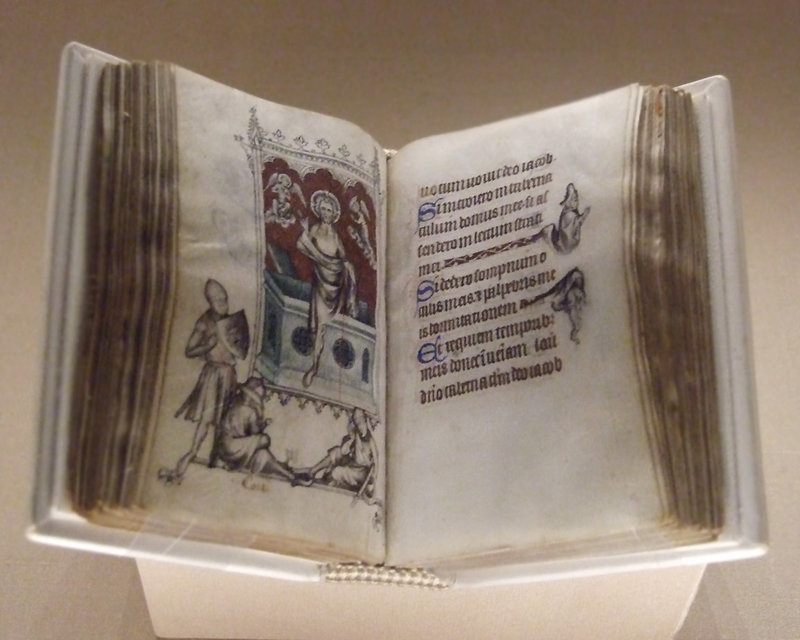 uotum uouit deo iacob.
Si introiero in taberna
culum domus mee. si as
cendero in lectum strati
mei.
Si dedero sompnum o
culis meis. ⁊ palpebris me
is dormitationem
Et requiem temporib;
meis donec
dño deo iacob